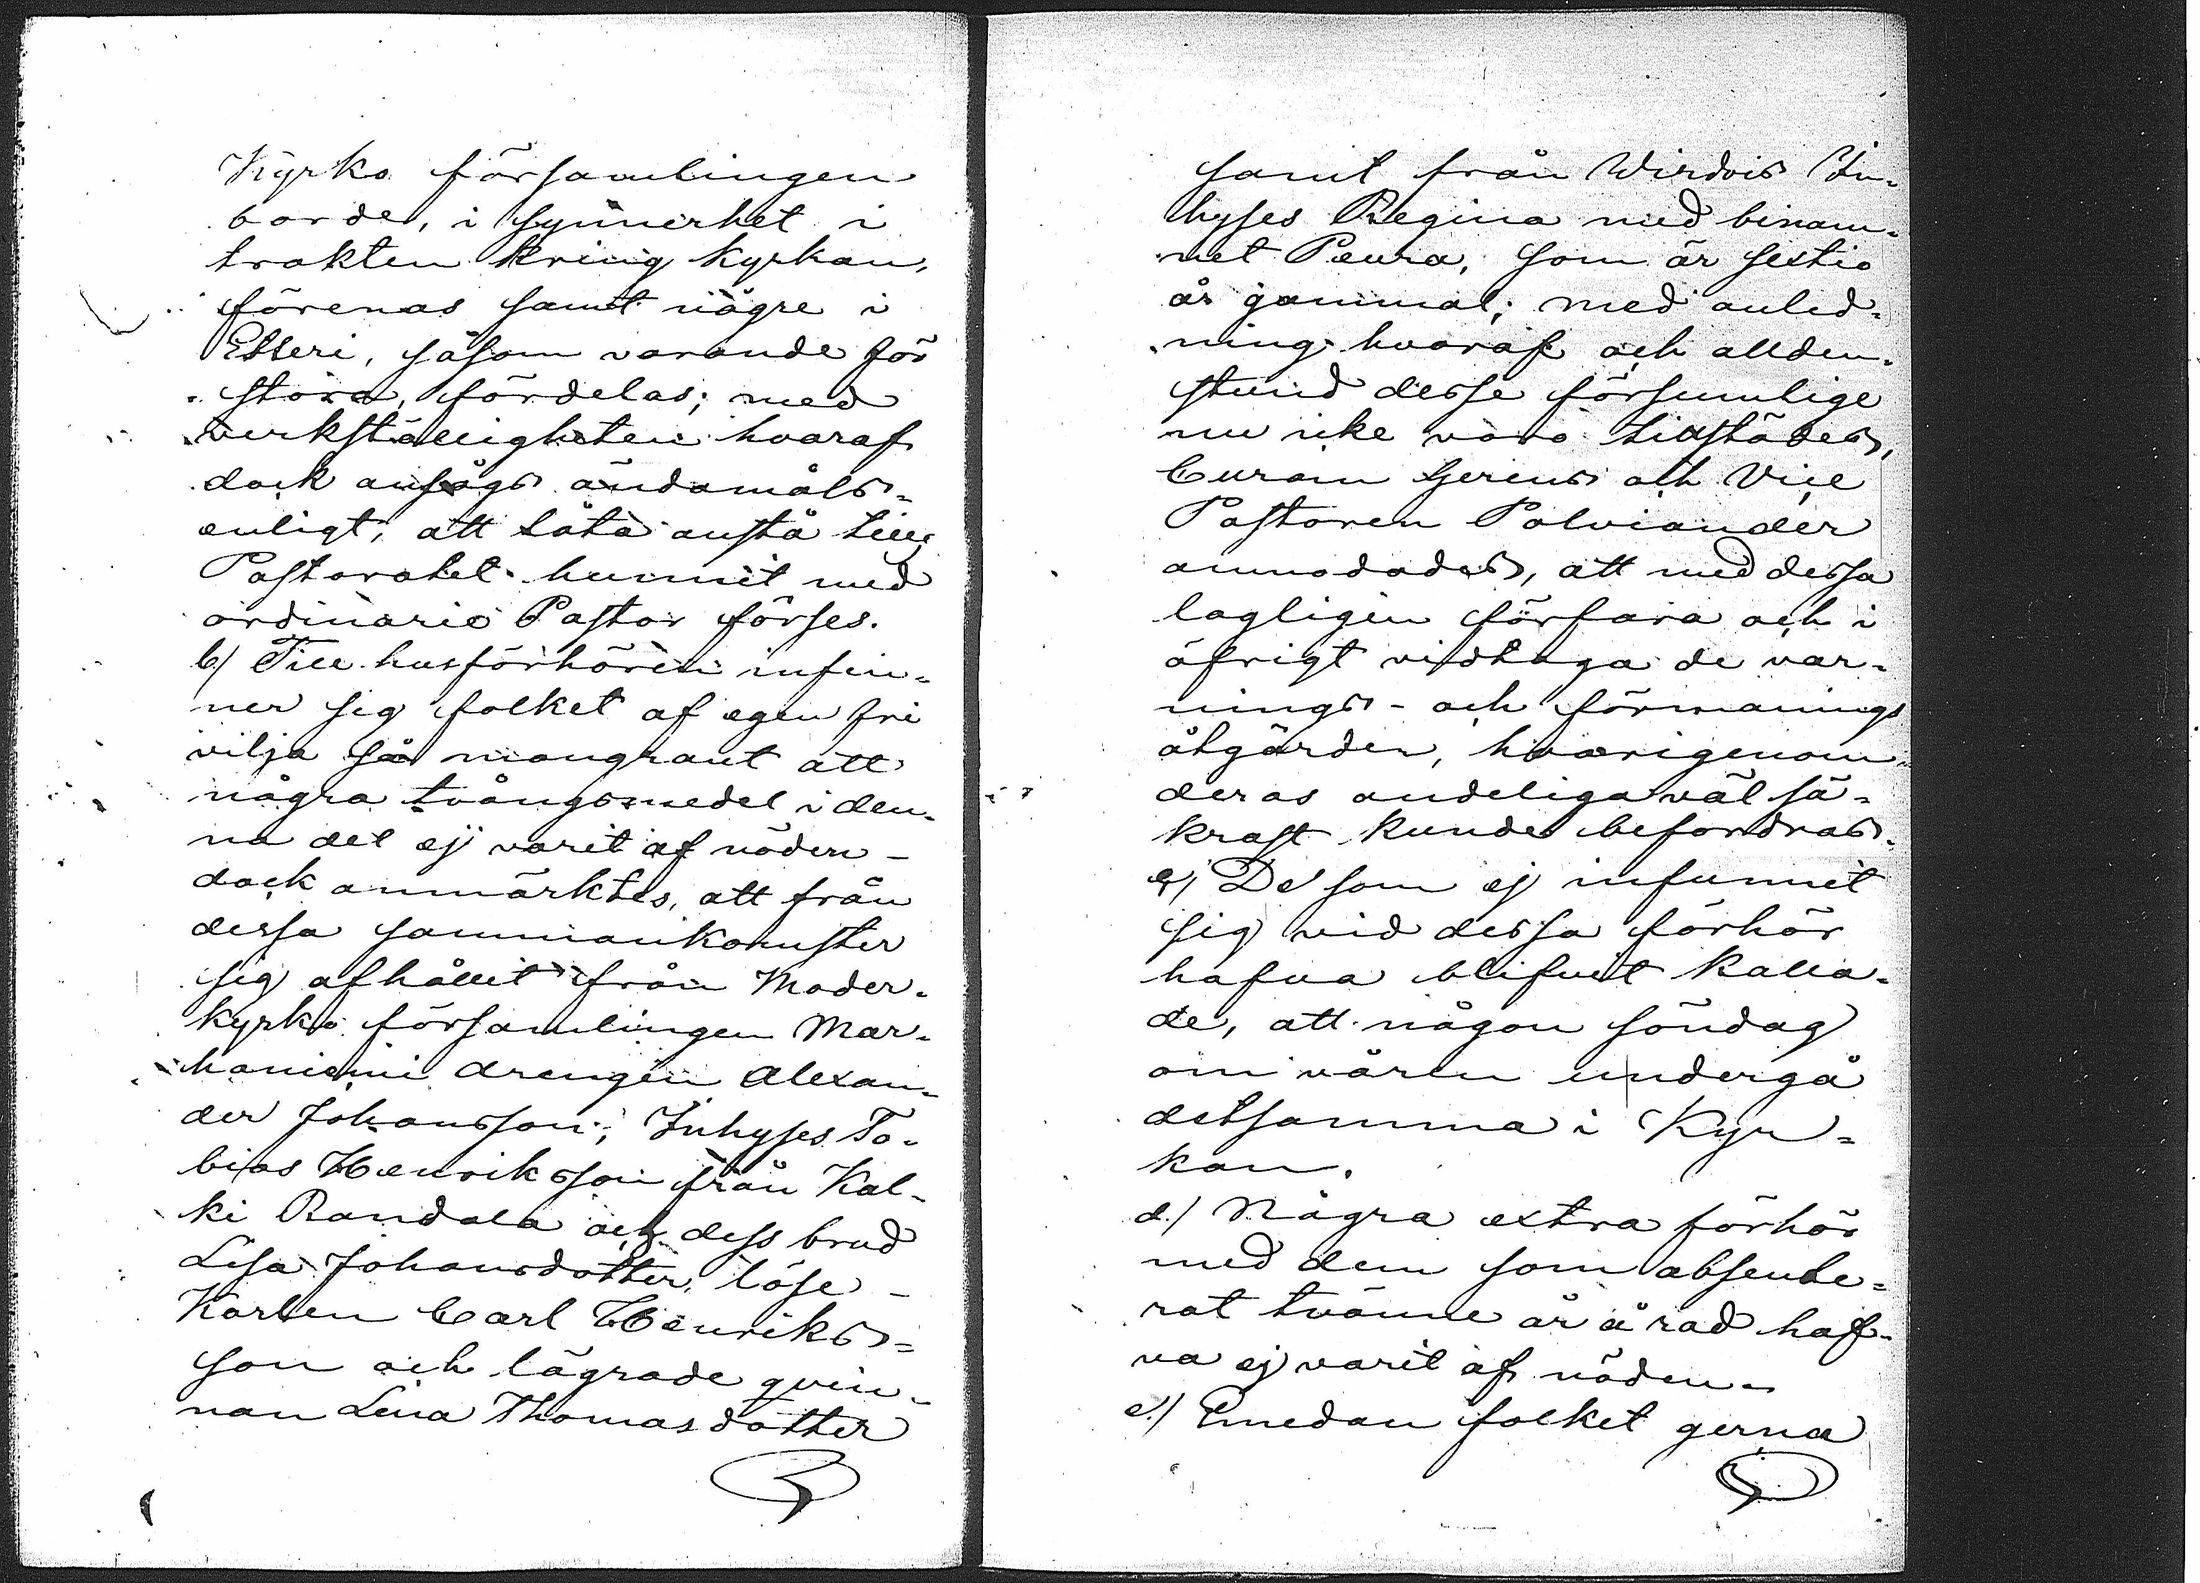 Kyrko församlingen
borde, i synnerhet i
trakten kring kyrkan,
förenas samt någre i
Etseri, såsom varande för
stora, fördelas; med
verkställigheten hvaraf
dock ansågs ändamåls-
enligt, att låta anstå till
Pastoratet hunnit med
ordinarie Pastor förses.
b/ Till husförhören infin-
ner sig folket af egen fri
vilja så mangrant att
några tvångsmedel i den-
na del ej varit af nöden –
dock anmärktes, att från
dessa sammankomster
sig afhållit från Moder-
kyrko församlingen Mar-
haniemi drengen Alexan-
der Johansson, Inhyses To-
bias Henriksson från Kal-
ki Randala och dess brud
Lisa Johansdotter, löse
Karlen Carl Henriks-
son och lägrade qvin-
nan Lena Thomasdotter
samt från Wirdois In-
hyses Regina med binam-
net Peura, som är sextio
år gammal; med anled-
ning hvaraf och allden-
stund desse försumlige
nu icke voro tillstädes,
Curam Gerens och Vice
Pastoren Polviander
anmodades, att med dessa
lagligen förfara och i
öfrigt vidtaga de var-
nings- och förmanings
åtgärder, hvarigenom
deras andeliga väl så-
kraft kunde befordras.
c/ De som ej infunnit
sig vid dessa förhör
hafva blifvit kalla-
de, att någon söndag
om våren undergå
detsamma i Kyr-
kan.
d./ Några extra förhör
med dem som absente-
rat tvänne år å rad haf-
va ej varit af nöden.
e./ Emedan folket gerna